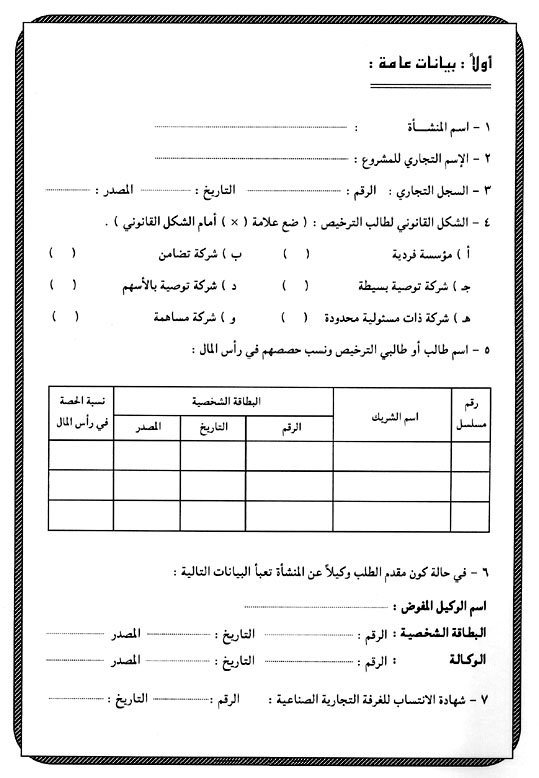 أولاً : بيانات عامة :
١ - اسم المنشـــأة :
٢ - الإسم التجاري للمشروع :
٣ - السجل التجاري : الرقم : التاريخ : المصدر :
٤ - الشكل القانوني لطالب الترخيص : ( ضع علامة ( × ) أمام الشكل القانوني ) .
أ ) مؤسسة فردية ( ) ب ) شركة تضامن ( )
جـ ) شركة توصية بسيطة ( ) د ) شركة توصية بالأسهم ( )
هـ ) شركة ذات مسئولية محدودة ( ) و ) شركة مساهمة ( )
٥ - اسم طالب أو طالبي الترخيص ونسب حصصهم في رأس المال :
رقم مسلسل اسم الشريك البطاقة الشخصية نسبة الحصة في رأس المال
الرقم التاريخ المصدر
٦ - في حالة كون مقدم الطلب وكيلاً عن المنشأة تعبأ البيانات التالية :
اسم الوكيل المفوض :
البطاقة الشخصية : الرقم : التاريخ : المصدر
الوكالة : الرقم : التاريخ : المصدر
٧ - شهادة الانتساب للغرفة التجارية الصناعية : الرقم : التاريخ :